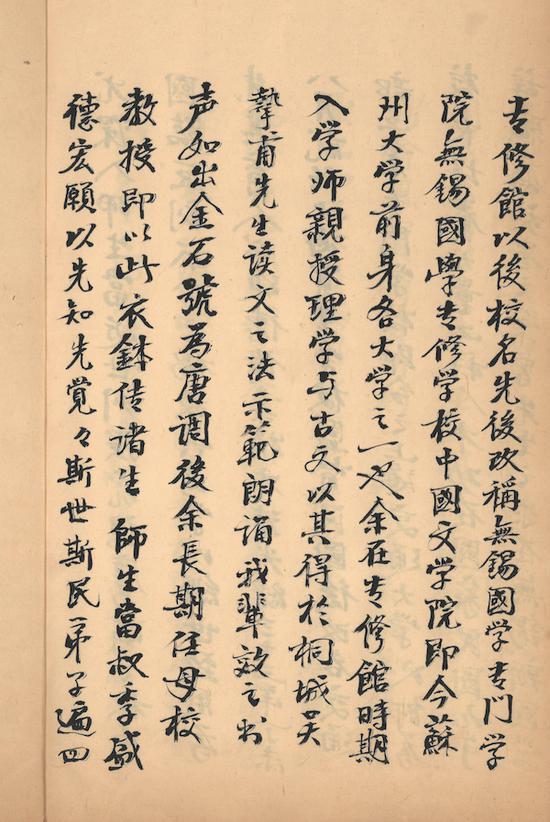 专修館以後校名先後改稱無锡國学专门学
院無锡國學专修学校中國文学院即今蘇
州大学前身各大学之一也余在专修館時期
入学师親授理学与古文以其得於桐城吴
摯甫先生读文之法示範朗诵我輩效之出
声如出金石號為唐调後余長期任母校
教授即以此衣鉢传诸生 師生當叔季盛
德宏願以先知先覚々斯世斯民弟子遍四